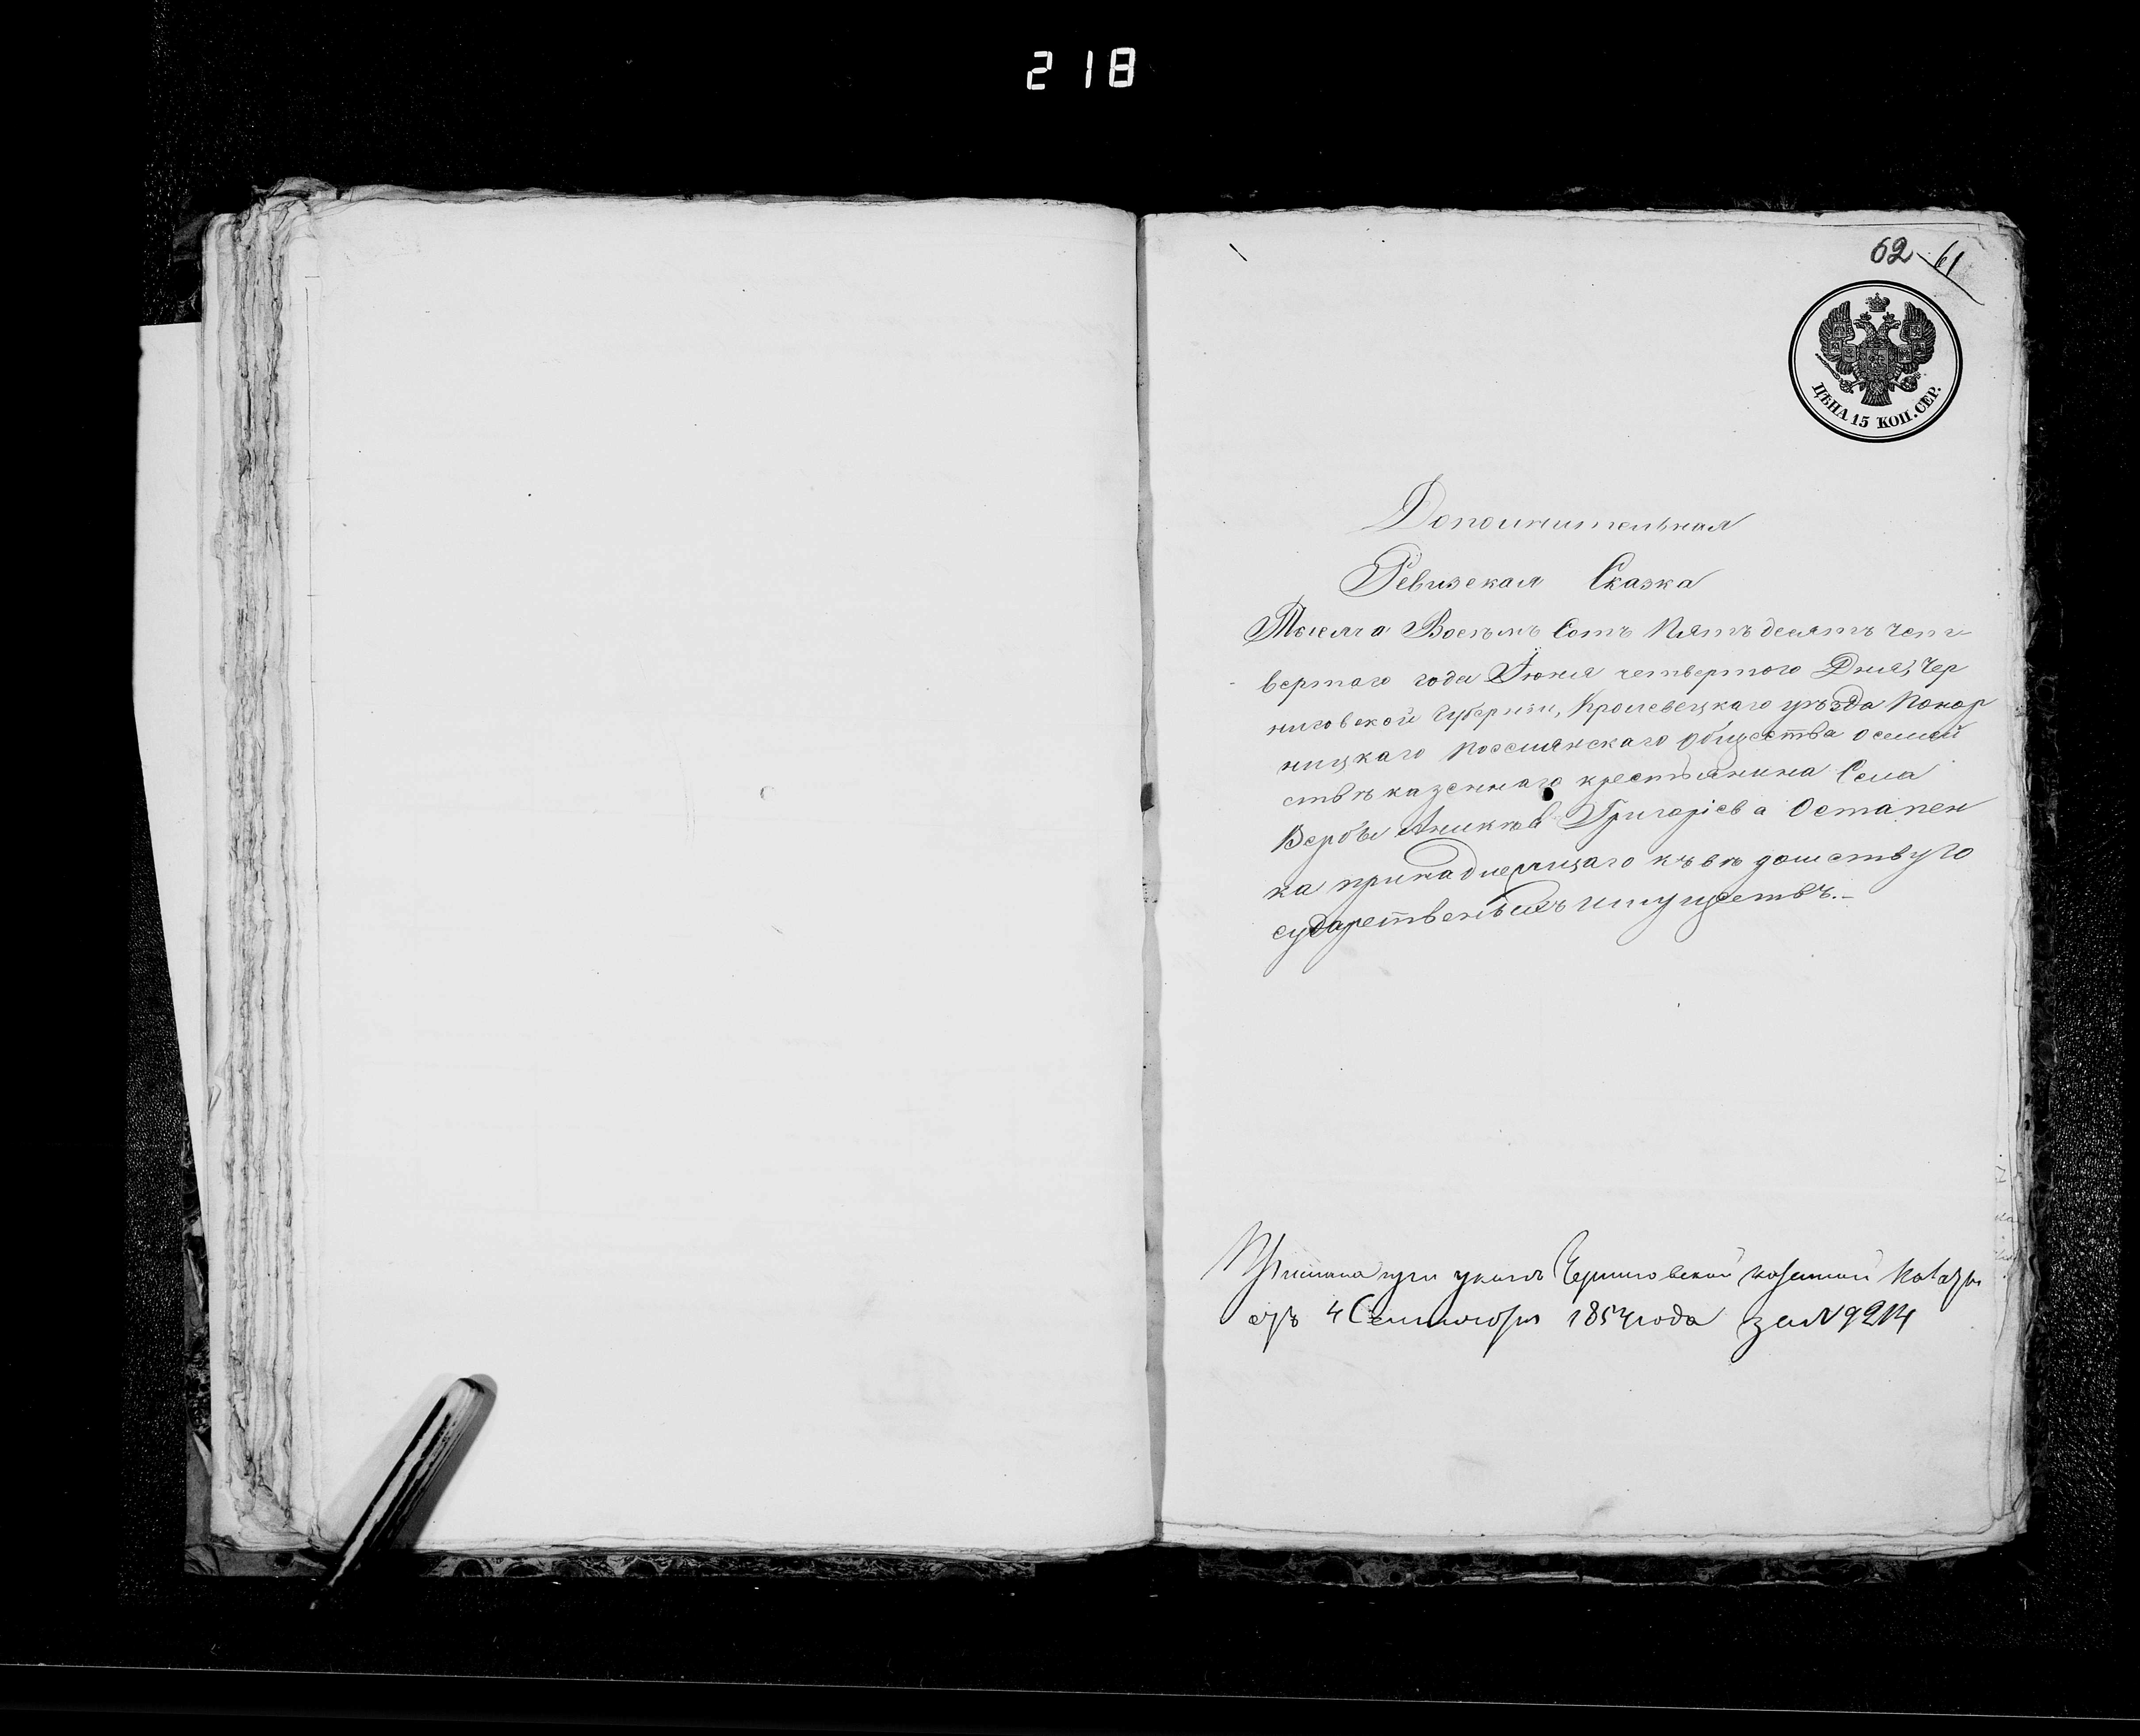 218
62 61
ЦѢНА 15 КОП. СЕР.
Дополнительная
Ревизская Сказка
Тысяча Восемь Сотъ Пятьдесятъ чет
вертаго года Июня четвертого Дня, Чер
ниговской Губерніи, Кролевецкаго уѣзда Понор
ницкаго поселянскаго общества о семей
ствѣ казеннаго крестьянина Села
Вербы Григоріева Остапен
ка принадлежащаго къ вѣдомству го
сударственныхъ имуществъ.-
при указѣ Черниговской казенной Палаты
отъ 4 Сентября 1854 года за № 9214